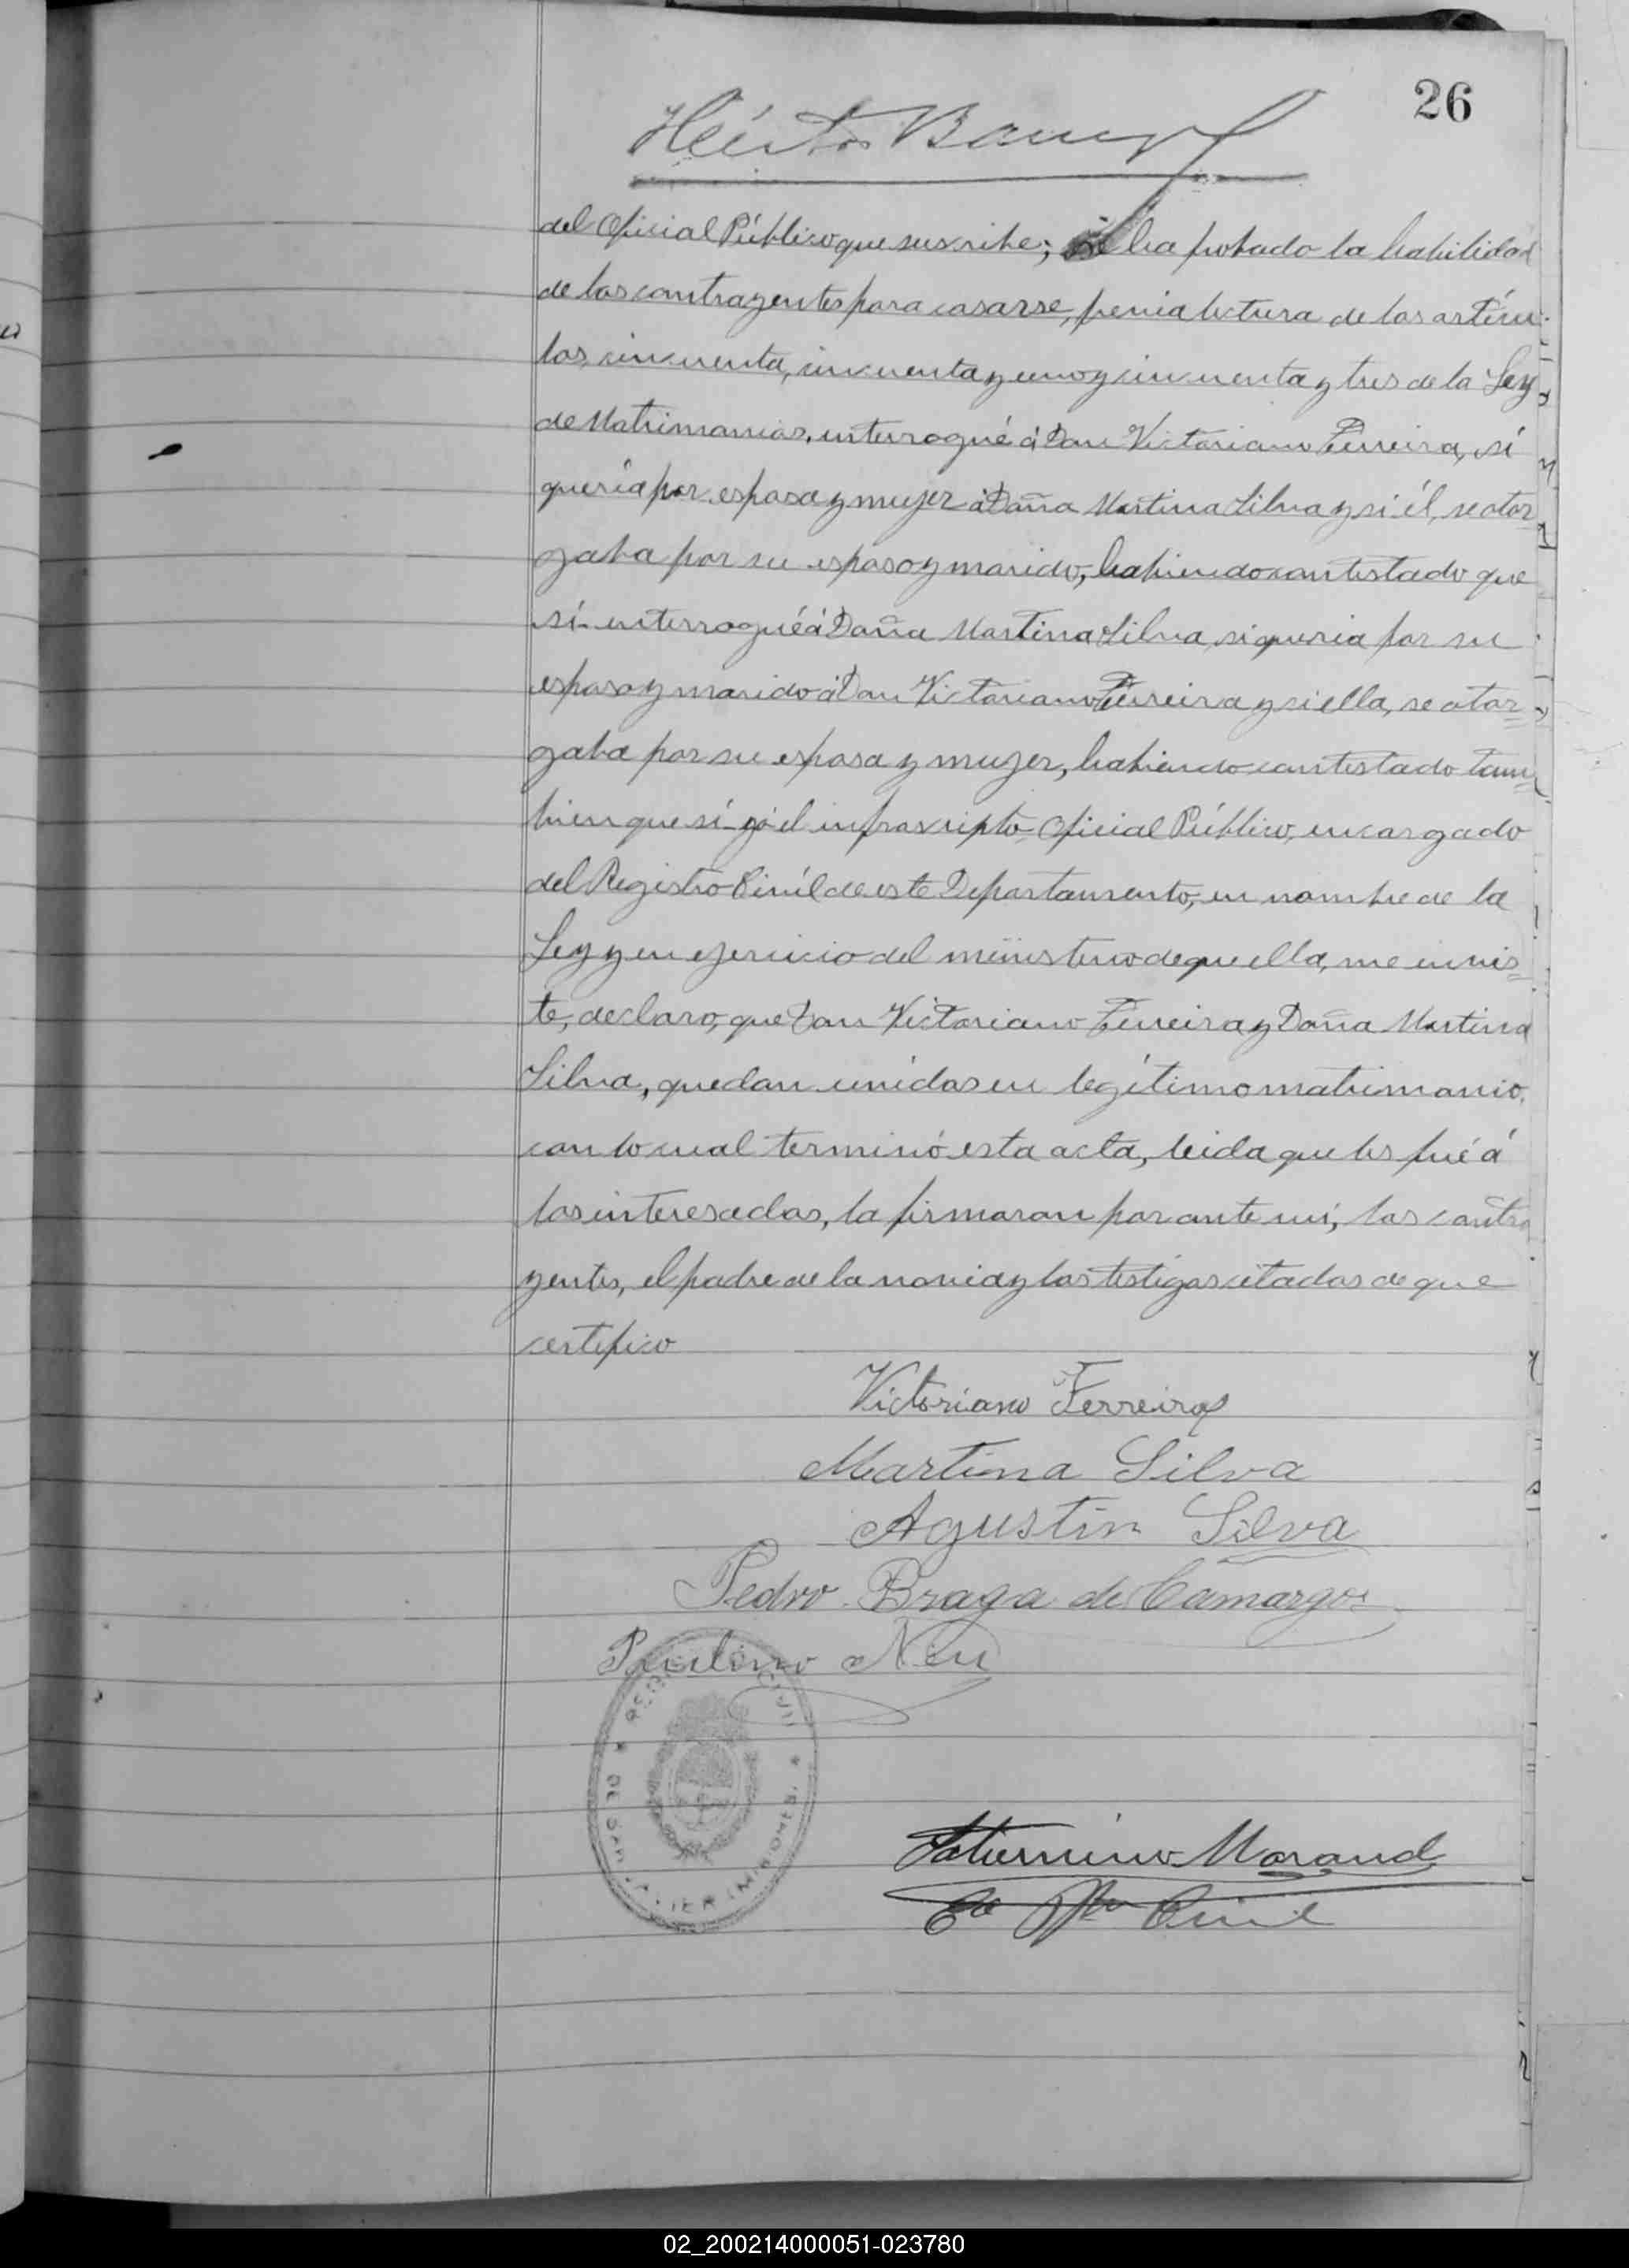 26
Héctor
del Oficial Público que suscribe; se ha probado la habilidad
de los contrayentes para casarse, prévia lectura de los artícu-
los, cincuenta, cincuenta y uno y cincuenta y tres de la Ley
de Matrimonios, interrogué á Don Victoriano Ferreira, sí
quería por esposa y mujer á Doña Martina Silva y si él, se otor
gaba por su esposo y marido, habiendo contestado que
sí- interrogué á Doña Martina Silva, si queria por su
esposo y marido á Don Victoriano Ferreira y si ella, se otor=
gaba por su esposa y mujer, habiendo contestado tam=
bien que sí- yó el infrascripto Oficial Público, encargado
del Registro Civíl de este Departamento, en nombre de la
Ley y en ejercicio del ministerio de que ella, me invis=
te, declaro, que Don Victoriano Ferreira y Doña Martina
Silva, quedan unidos en legítimo matrimonio,
con lo cual terminó esta acta, leida que les fué á
los interesados, la firmaron por ante mí, los contra
yentes, el padre de la novia y los testigos citados de que
certifico
Victoriano Ferreira
Martina Silva
Agustin Silva
Pedro Braga de Camargo
Paulino Neu
REGISTRO CIVIL
* DE SAN JAVIER (MISIONES) *
Saturnino Morand
Civil
02_200214000051-023780